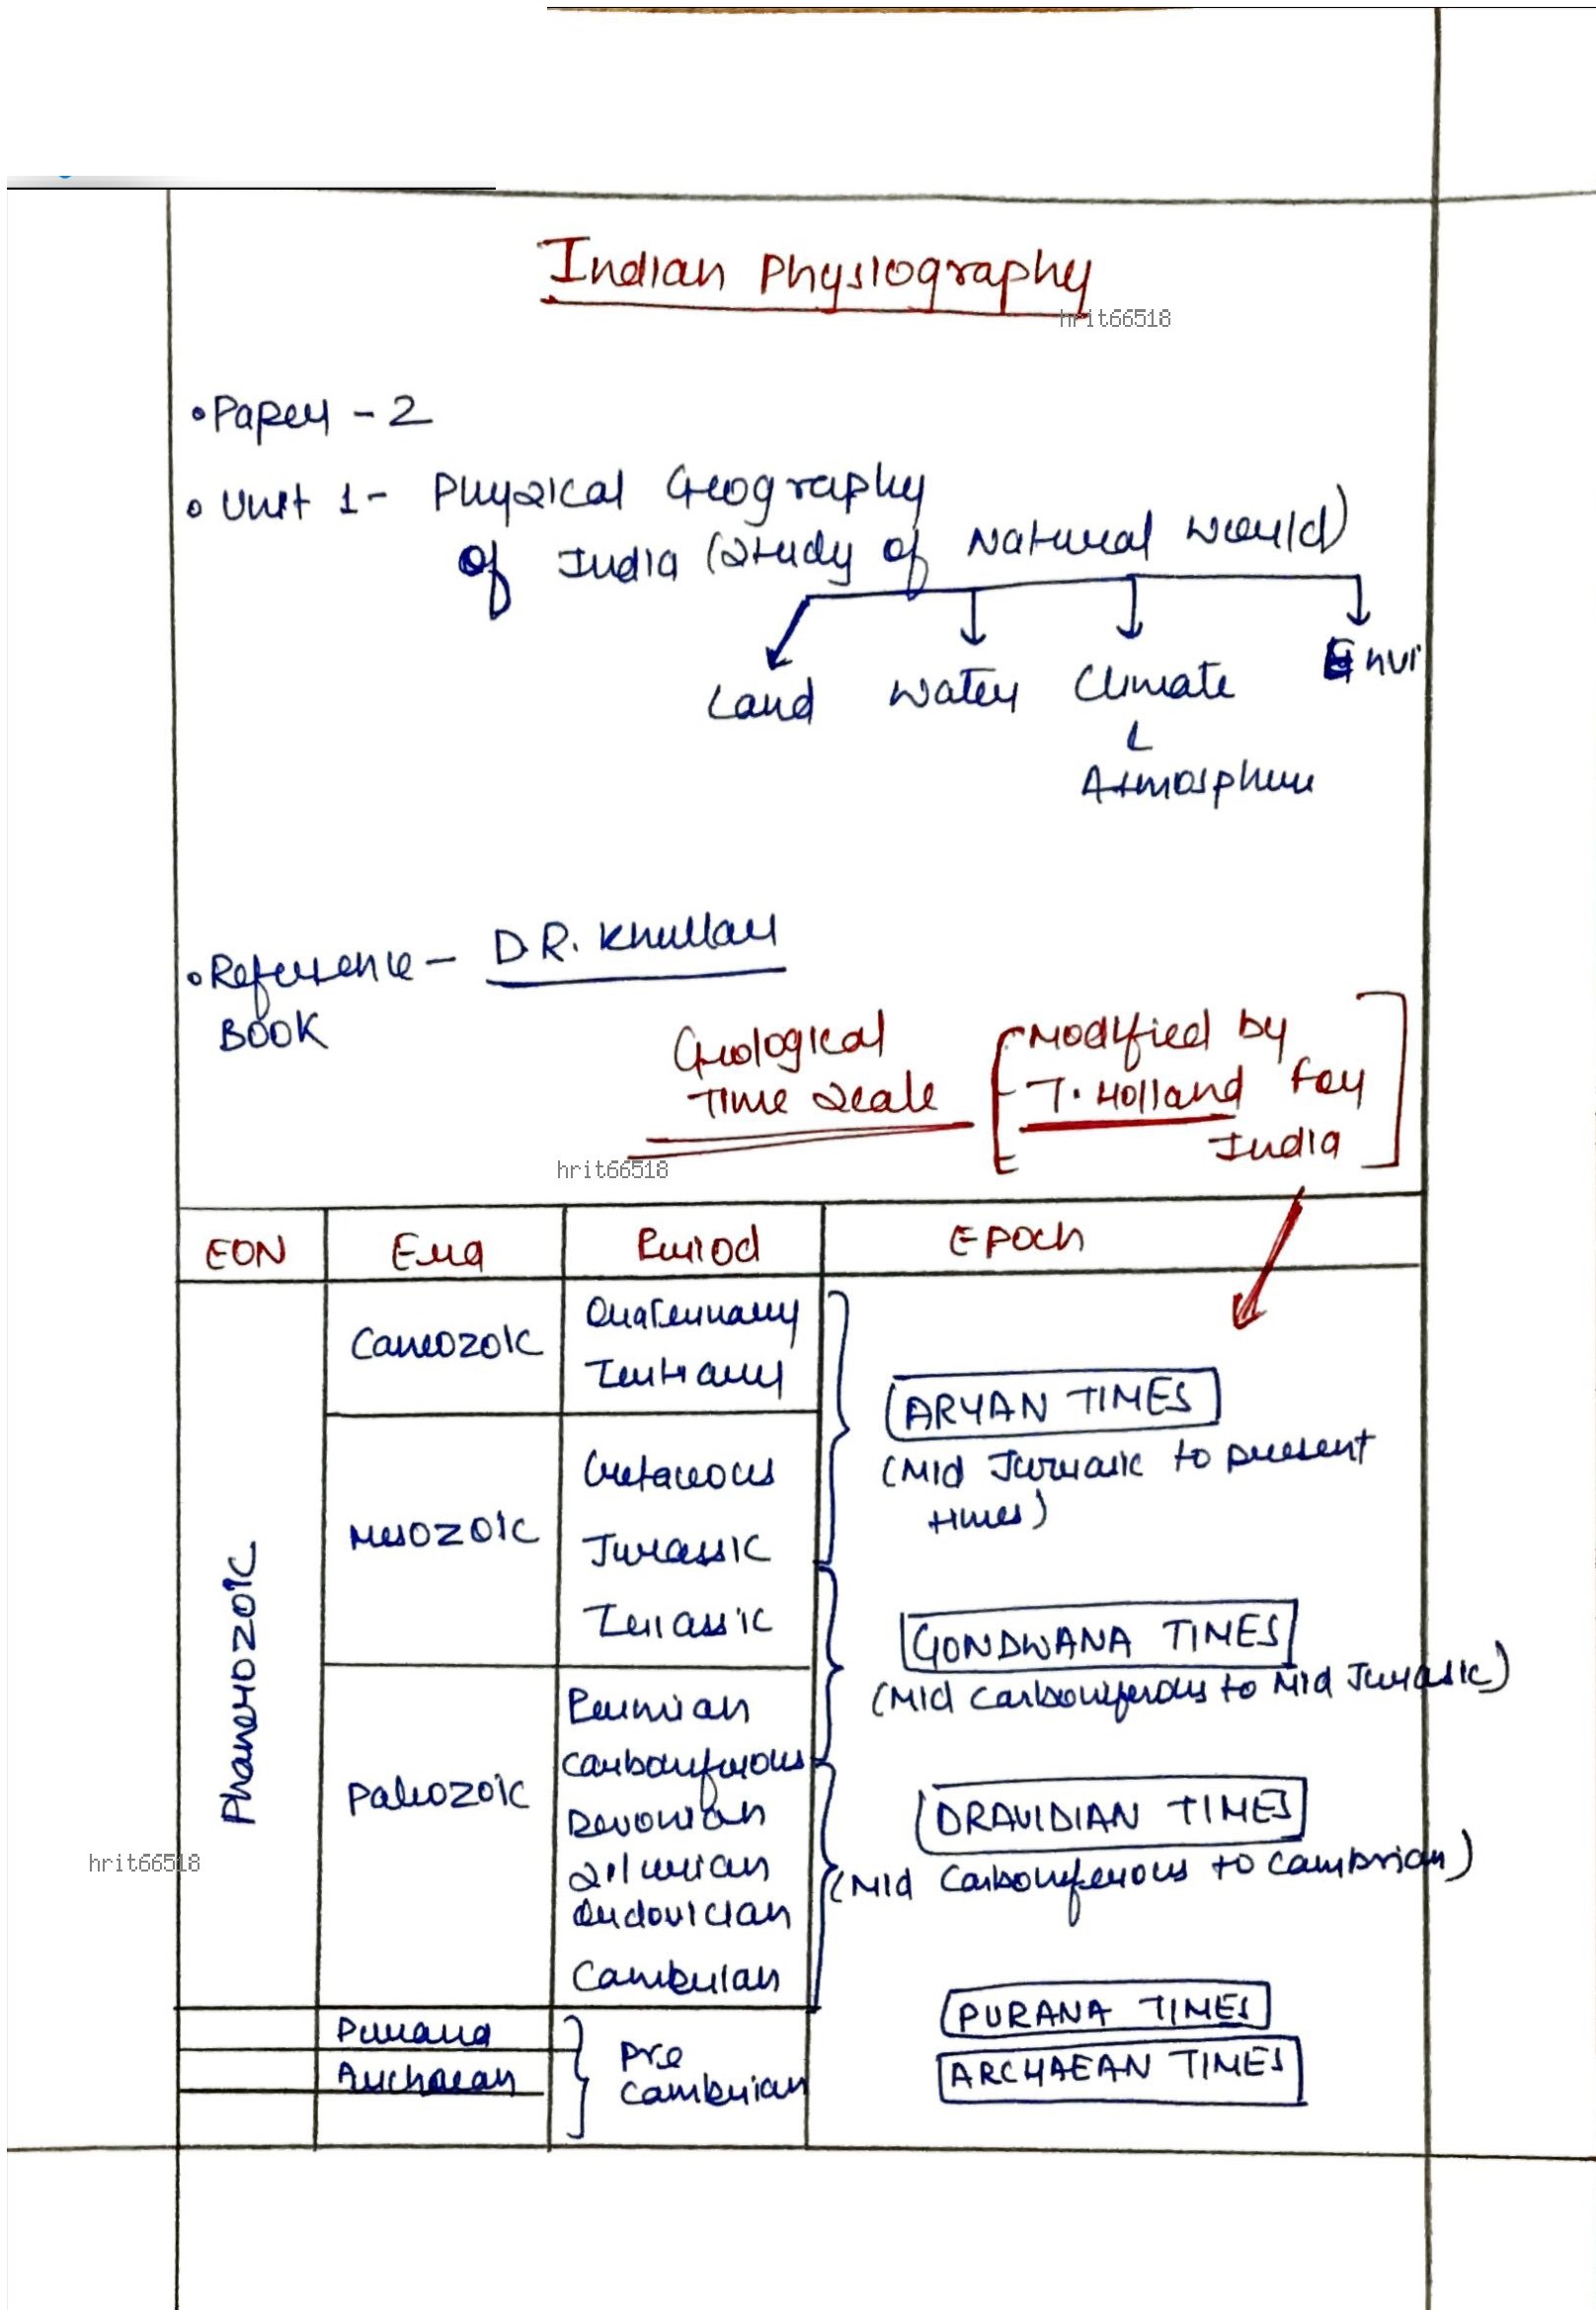 Indian Physiography
hrit66518
• Paper - 2
• Unit 1 - Physical Geography
of India (Study of Natural World)
Land Water Climate Envi
Atmosphere
• Reference - D.R. Khullar
BOOK
Geological
Time Scale
Modified by
T. Holland for
India
hrit66518
EON Era Period EPOCH
Phanerozoic
Caneozoic
Quaternary
Tertiary
ARYAN TIMES
(Mid Jurrasic to present
times)
Mesozoic
Cretaceous
Jurassic
Teriassic
GONDWANA TIMES
(Mid Carboniferous to Mid Jurasic)
Paleozoic
Permian
Carboniferous
Devonian
Silurian
Ordovician
Cambrian
DRAVIDIAN TIMES
(Mid Carboniferous to Cambrian)
hrit66518
Purana
Archaean
Pre
Cambrian
PURANA TIMES
ARCHAEAN TIMES